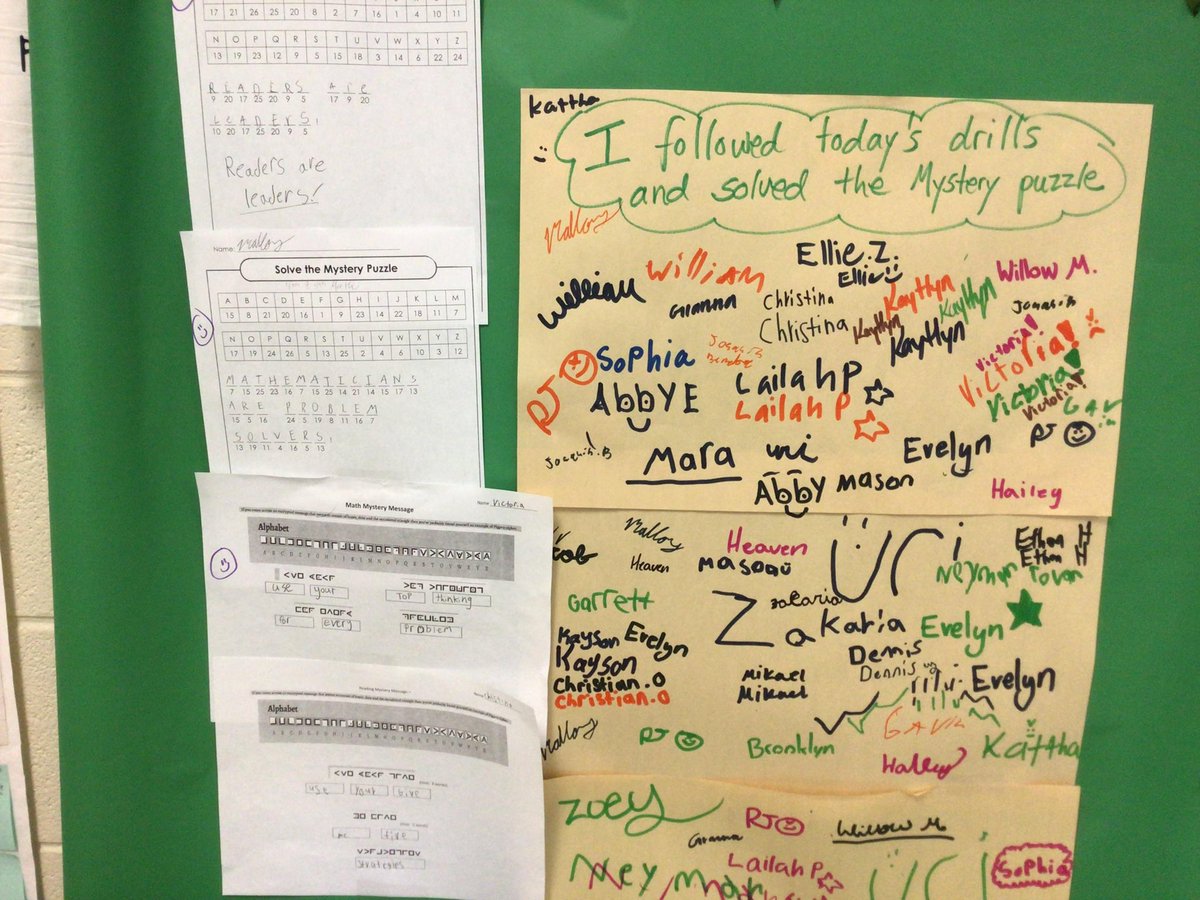 17 21 25 20 2 7 16 1 4 10 11
N O P Q R S T U V W X Y Z
13 19 23 12 9 5 15 18 3 14 6 22 24
READERS Are
9 20 17 25 20 9 5 17 9 20
LEADERS!
10 20 17 25 20 9 5
Readers are
leaders!
Name: Malloy
Solve the Mystery Puzzle
A B C D E F G H I J K L M
15 8 21 20 16 1 9 23 14 22 18 11 7
N O P Q R S T U V W X Y Z
17 19 24 26 5 13 25 2 4 6 10 3 12
MATHEMATICIANS
7 15 25 23 16 7 15 25 14 21 14 15 17 13
ARE PROBLEM
15 5 16 24 5 19 8 11 16 7
SOLVERS!
13 19 11 4 16 5 13
Math Mystery Message
Name: Victoria
Alphabet
A B C D E F G H I J K L M N O P Q R S T U V W X Y Z
use your
TOP thinking
for every
Problem
Reading Mystery Message
Name Christina
Alphabet
A B C D E F G H I J K L M N O P Q R S T U V W X Y Z
use your five
me five
strategies
Kattha
I followed today's drills
and solved the Mystery puzzle
Malloy
Ellie.Z.
Ellie
William
William
Gianna
Christina
Christina
Kaytlyn
Kaytlyn
Kaytlyn
Kaytlyn
Willow M.
Josas.B
Victoria!
Victoria!
Victoria
Victoria
GAV
RJ
Sophia
AbbyE
LailahP
LailahP
RJ
Mara
Evelyn
Abby
Mason
Hailey
Malloy
Heaven
Heaven
Mason
Uri
Ethan H
Ethan H
Neymar Tovar
Garrett
Zakaria
zakaria
Evelyn
Kayson
Evelyn
Kayson
Christian.O
Christian.O
Mikael
Mikael
Dennis
Dennis
Evelyn
Malloy
RJ
Brooklyn
GAVIN
Hailey
Kattha
Zoey
Gianna
RJ
Willow M.
LailahP
Sophia
Neymar